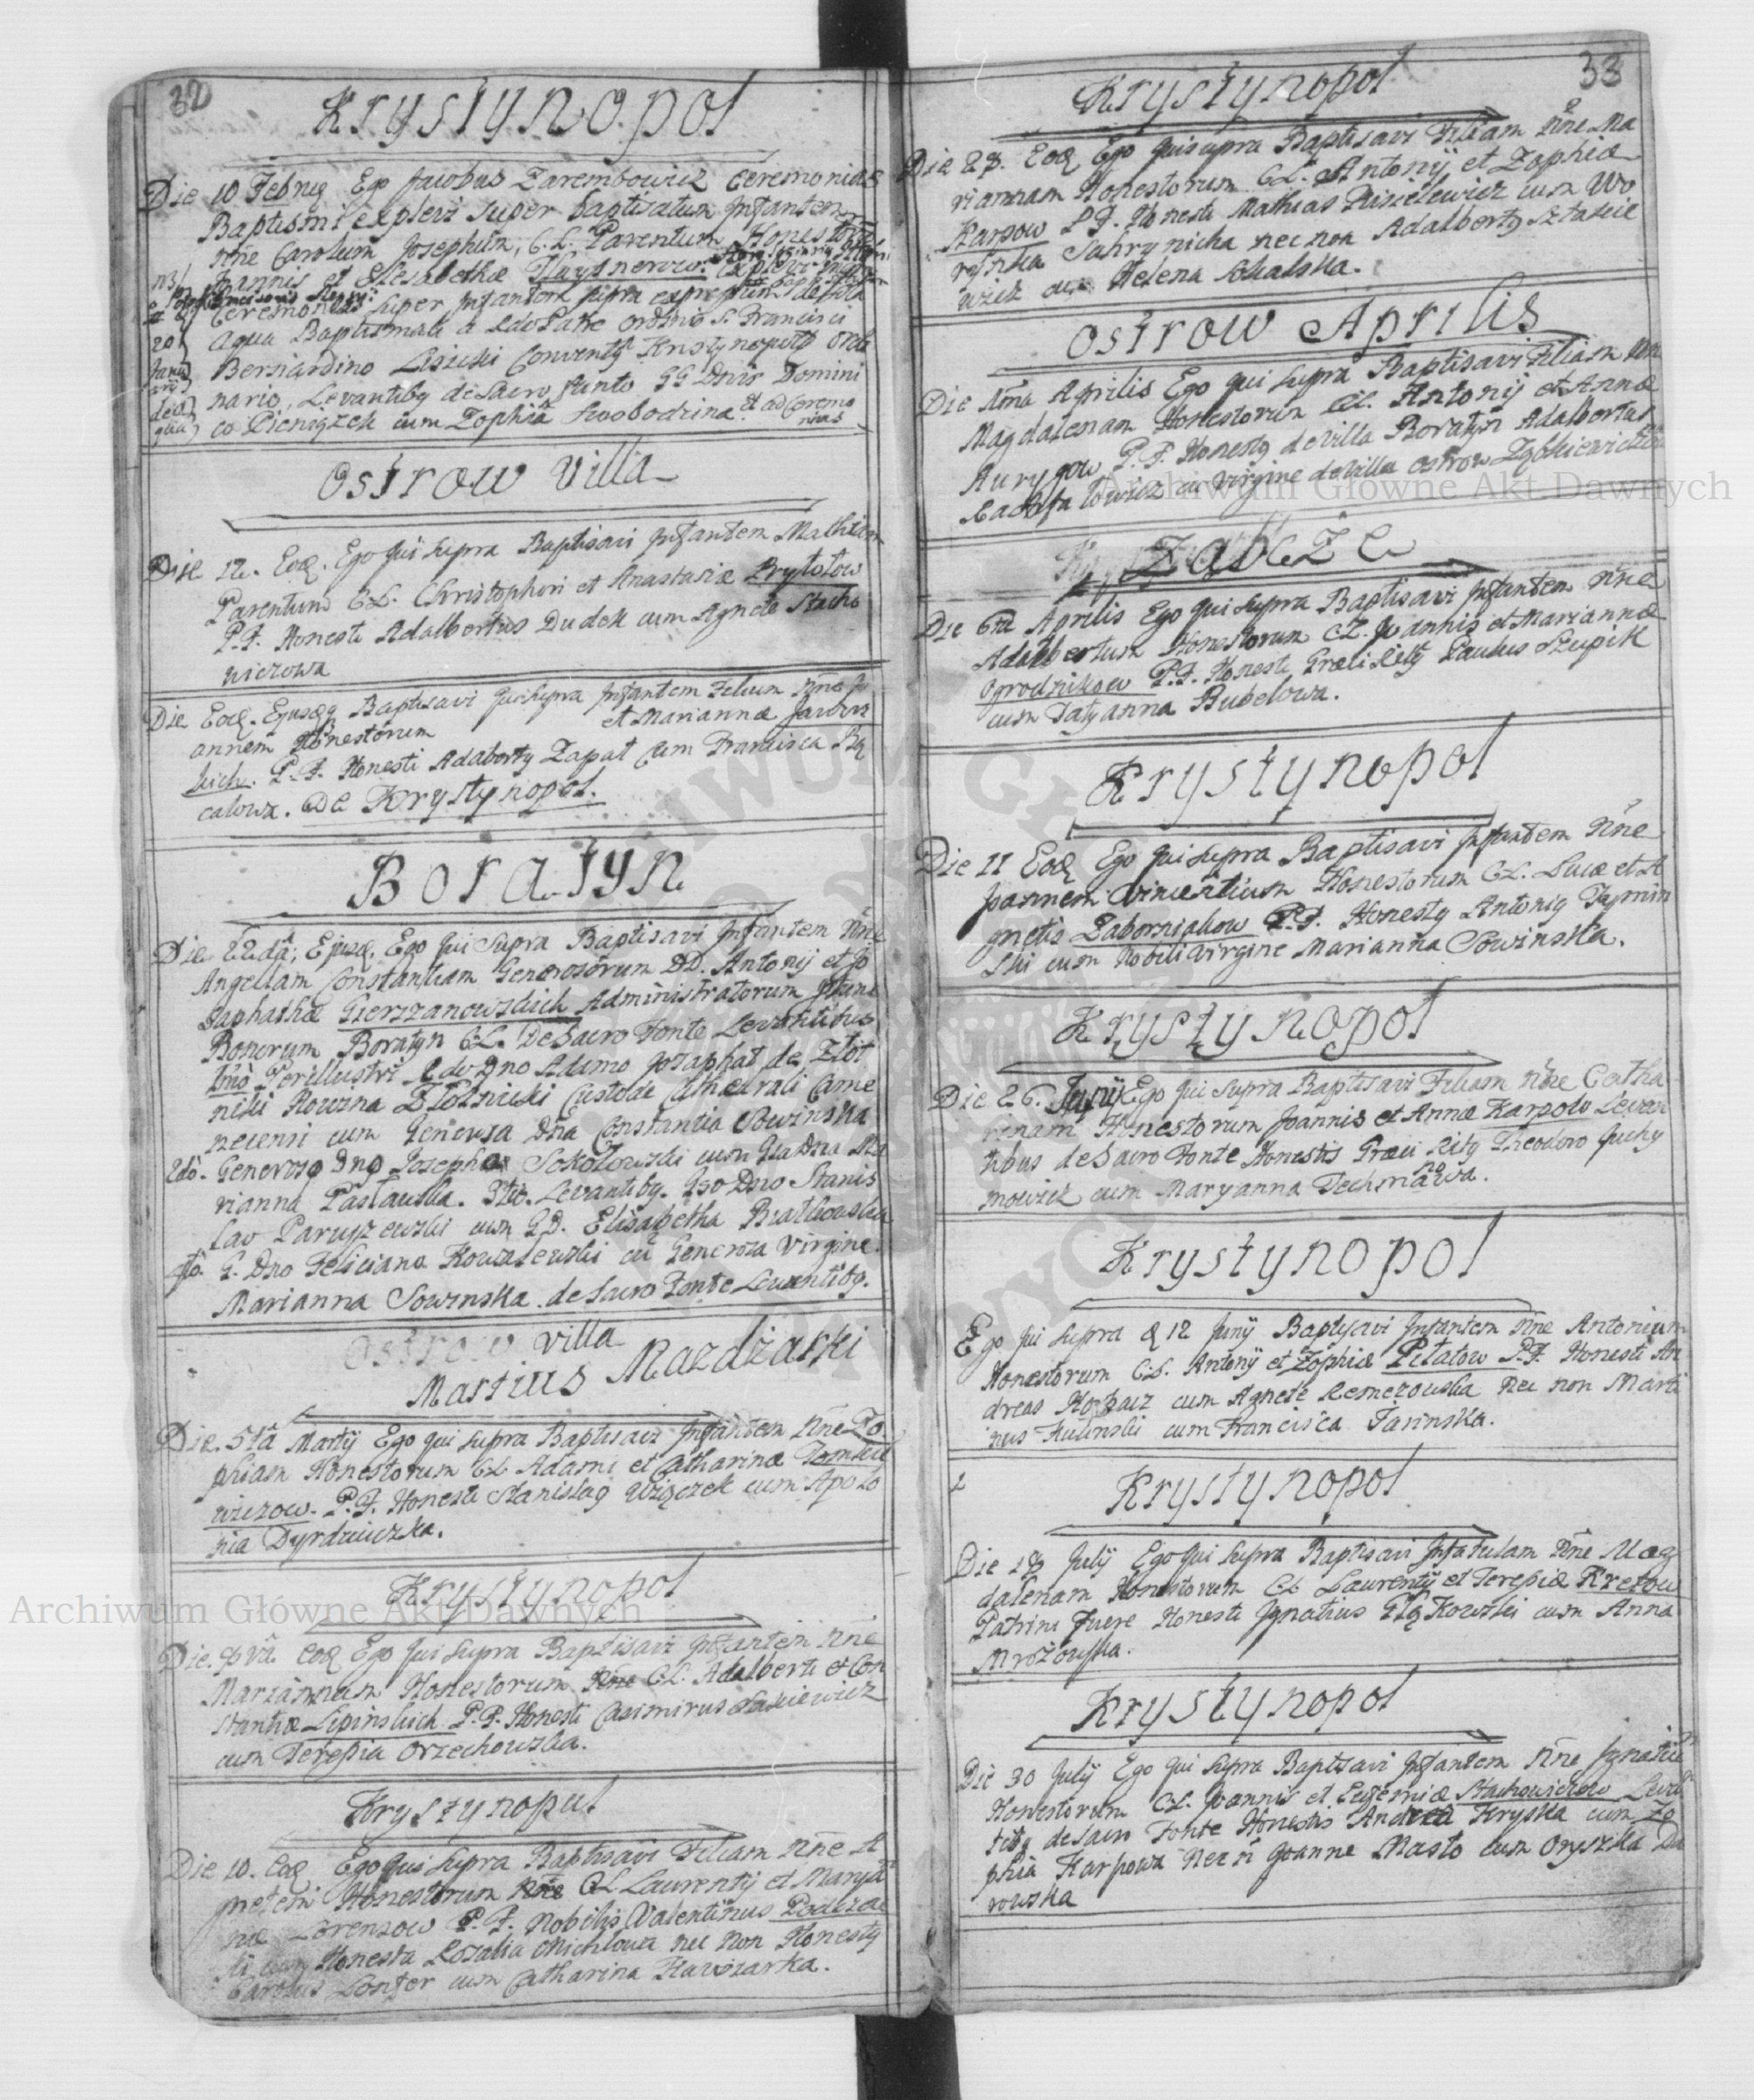 32
Krystynopol
Die 10 Febr Ego Jacobus Zarembowicz Ceremonias
Baptismi explevi super baptisatum Infantem
nne Carolum Josephum, C. L. Parentum Honestor
Joannis et Elisabethæ
Ceremonias super Infantem supra expressum de
aqua Baptismali a Rdo Patre ordinis S. Francisci
Bernardino Lisicki Convent Krystynopol ordi
nario, Levantibg de Sacro fonte GG Dnis Domini
co Pieniążek cum Zophia Swobodzina et ad Ceremo
nias
Ostrow Villa
Die 12. Eod. Ego qui supra Baptisavi Infantem Mathiam
Parentum C.L. Christophori et Anastasiæ Prytołow
P.P. Honesti Adalbertus Dudek cum Agnete Stacho
wiczowa
Die Eod. Ejusdq Baptisavi qui supra Infantem Filium nne Jo
annem Honestorum et Mariannæ Jawor
skich. P.P. Honesti Adalbertg Zapał cum Francisca Bą
calowa. de Krystynopol.
Boratyn
Die 22da; Ejusd. Ego qui supra Baptisavi Infantem Nne
Angellam Constantiam Generosorum DD. Antonij et Jo
saphathæ Gierzanowskich Administratorum
Bonorum Boratyn C.L. De Sacro Fonte Levantibus
1mo Perillustri Rdo Dno Adamo Jozaphat de Złot
niki Rowzna Złotnicki Custode Cathedrali Came
necensi cum Generosa Dna Constantia Sowinska
2do. Generoso Dno Josepho Sokołowski cum Gsa Dna Ma
rianna Pasławska. 3tio. Levantibg. Gso Dno Stanis
lao Paruszewski cum G.D. Elisabetha Białkowska
4to. G. Dno Feliciano Kowalewski cu Generosa Virgine
Marianna Sowinska de Sacro Fonte Levantibg.
Ostrow villa
Martius Mazdżarki
Die. 5ta Martij Ego qui supra Baptisavi Infantem Nne Zo
phiam Honestorum C.L. Adami et Catharinæ Tomkie
wiczow. P.P. Honesti Stanislag Wiączek cum Apolo
nia Dyrdziuczka.
Krystynopol
Die. 9va Eod Ego qui supra Baptisavi Infantem Nne
Mariannam Honestorum C.L. Adalberti et Con
stantiæ Lipinskich P.P. Honesti Casimirus Łukiewicz
cum Teresia Orzechowska.
Krystynopol
Die 10. Eod Ego qui supra Baptisavi Filiam Nne A
gnetem Honestorum CL Laurentij et Marya
nnæ Lorencow P.P. Nobilis Valentinus Podczas
ki cum Honesta Rosalia Michlowa nec non Honestg
Carolus Lonfer cum Catharina Kawiarka.
33
Krystynopol
Die 27. Eod Ego qui supra Baptisavi Filiam Nne Ma
riannam Honestorum C.L. Antonij et Zophiæ
Karpow P.P. Honesti Mathias Pisielewicz cum
Sahrynicha nec non Adalbertg Sztaskie
wicz cum Helena Sokalska.
Ostrow Aprilis
Die 1ma Aprilis Ego qui supra Baptisavi Filiam Nne
Magdalenam Honestorum CL. Antonij et Annæ
Aurygow P.P. Honestg de Villa Boratyn Adalbertus
cu Virgine de Villa Ostrow
Zabcze
Die 6ta Aprilis Ego qui supra Baptisavi Infantem Nne
Adalbertum Honestorum C.L. Joannis et Mariannæ
Ogrodnikow P.P. Honesti Græci Ritg Paulus Słupik
cum Tatyanna Bubelowa.
Krystynopol
Die 11 Eod Ego qui supra Baptisavi Infantem Nne
Joannem Vincentium Honestorum C.L. Lucæ et A
gnetis Zaborniakow P.P. Honestg Antonig Tymin
ski cum Nobili Virgine Marianna Sowinska.
Krystynopol
Die 26. Junij Ego qui supra Baptisavi Filiam Nne Catha
rinam Honestorum Joannis et Annæ Karpow Levan
tibus de Sacro Fonte Honestis Græci Ritg Theodoro Juchy
mowicz cum Maryanna Techmanowa.
Krystynopol
Ego qui supra d 12 Junij Baptysavi Infantem Nne Antonium
Honestorum C.L. Antonij et Zophiæ Piłatow P.P. Honesti An
dreas Horbacz cum Agnete Remezowska Nec non Marti
nus Kulinski cum Francisca Jasinska.
Krystynopol
Die 18 July Ego qui supra Baptisavi Infatulam Nne Mag
dalenam Honestorum CL Laurentij et Teresiæ Kretow
Patrini Fuere Honesti Ignatius Głąkowski cum Anna
Mrozowska.
Krystynopol
Die 30 July Ego qui supra Baptisavi Infantem Nne Ignatiu
Honestorum C.L. Joannis et Eugemiæ Stachowiczow Levan
tibg de Sacro Fonte Honestis Andrea Kryska cum Zo
phia Karpowa Nec n Joanne Masło cum Oryszka Du
rowska
Archiwum Główne Akt Dawnych
Archiwum Główne Akt Dawnych